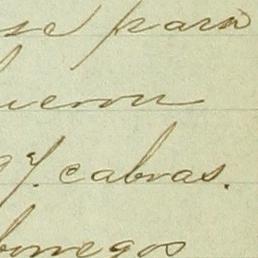 se para
ueron
y. cabras.
borregos